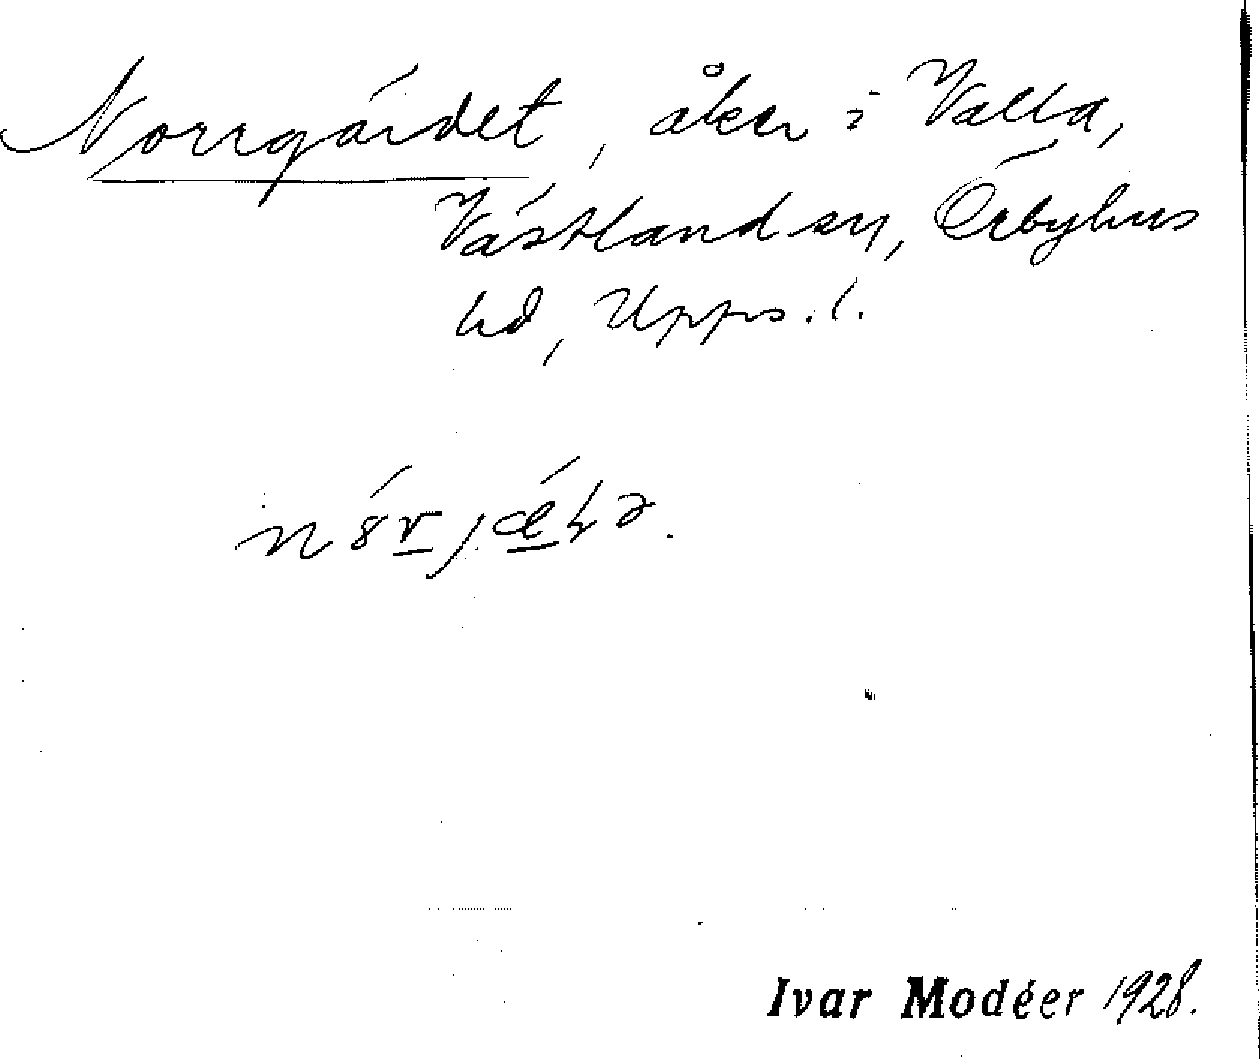 Norrgärdet, åker i Valla,
Västland sn, Örbyhus
hd, Upps. l.
Ivar Modéer 1928.